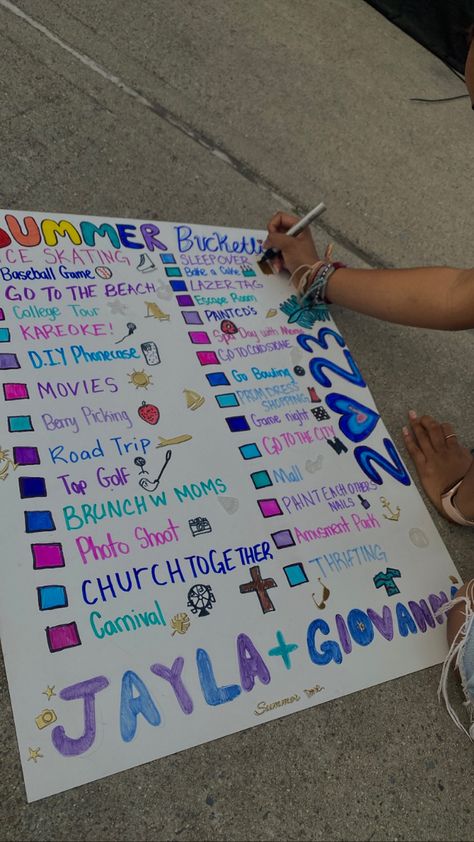 SUMMER Bucketli
ICE SKATING
Baseball Game
GO TO THE BEACH
College Tour
KAREOKE!
D.I.Y Phonecase
MOVIES
Berry Picking
Road Trip
Top Golf
BRUNCH W MOMS
Photo Shoot
CHURCH TOGETHER
Carnival
SLEEPOVER
Bake a Cake
LAZER TAG
Escape Room
PAINT CD'S
Spa Day with Moms
GO TO COLDSTONE
Go Bowling
PROM DRESS
SHOPPING
Game night
GO TO THE CITY
Mall
PAINT EACH OTHERS
NAILS
Amusment Park
THRIFTING
2023
JAYLA + GIOVANNA
Summer